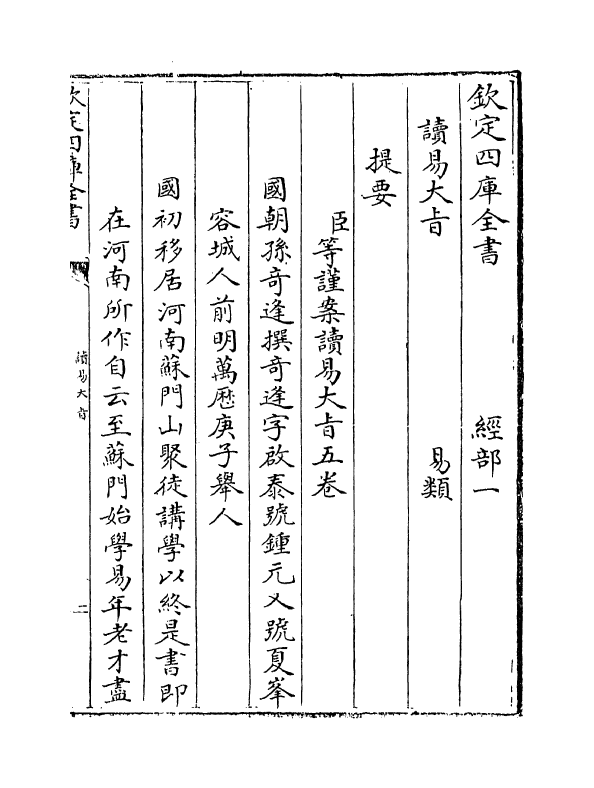 欽定四庫全書　經部一
讀易大旨　易類
提要
臣等謹案讀易大旨五卷
國朝孫竒逢撰竒逢字啟泰號鍾元又號夏峯
容城人前明萬厯庚子舉人
國初移居河南蘇門山聚徒講學以終是書即
在河南所作自云至蘇門始學易年老才盡
欽定四庫全書
讀易大旨
二